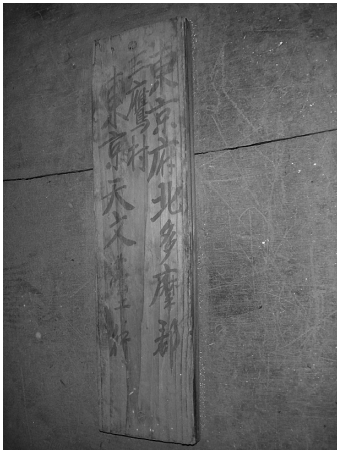 東京府北多摩郡
三鷹村
東京天文臺